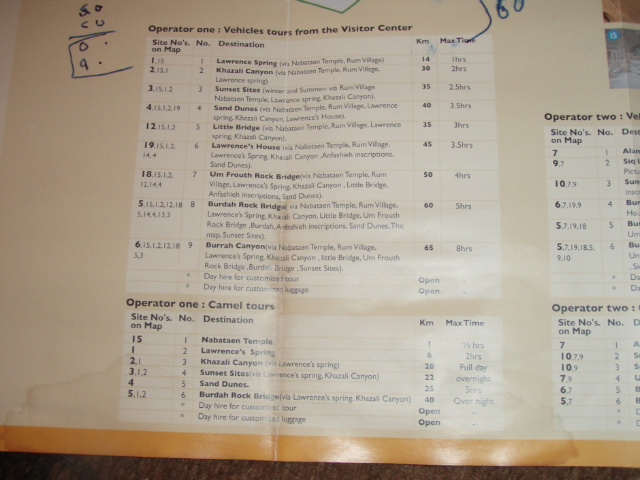 60
50
Operator one : Vehicles tours from the Visitor Center
Site No's. on Map No. Destination Km Max Time
1,15 1 Lawrence Spring (via Nabataen Temple, Rum Village) 14 1hrs
2,15,1 2 Khazali Canyon (via Nabataen Temple, Rum Village, 30 2hrs
Lawrence spring)
3,15,1,2 3 Sunset Sites (winter and Summer- via Rum Village 35 2.5hrs
Nabataen Temple, Lawrence spring, Khazali Canyon).
4,15,1,2,19 4 Sand Dunes (via Nabataen Temple, Rum Village, Lawrence 40 3.5hrs
spring, Khazali Canyon, Lawrence's House).
12,15,1,2 5 Little Bridge (via Nabataen Temple, Rum Village, Lawrence 35 3hrs
spring, Khazali Canyon).
19,15,1,2, 6 Lawrence's House (via Nabataen Temple, Rum Village, 45 3.5hrs
14,4 Lawrence's Spring, Khazali Canyon ,Anfashieh inscriptions,
Sand Dunes).
18,15,1,2, 7 Um Frouth Rock Bridge(via Nabataen Temple, Rum 50 4hrs
12,14,4 Village, Lawrence's Spring, Khazali Canyon , Little Bridge,
Anfashieh inscriptions, Sand Dunes).
5,15,1,2,12,18 8 Burdah Rock Bridge(via Nabataen Temple, Rum Village, 60 5hrs
5,14,4,13,3 Lawrence's Spring, Khazali Canyon, Little Bridge, Um Frouth
Rock Bridge ,Burdah, Anfashieh inscriptions, Sand Dunes, The
map, Sunset Sites).
6,15,1,2,12,18 9 Burrah Canyon(via Nabataen Temple, Rum Village, 65 8hrs
5,3 Lawrence's Spring, Khazali Canyon , little Bridge, Um Frouth
Rock Bridge ,Burdah Bridge , Sunset Sites).
* Day hire for customized tour Open -
* Day hire for customized luggage Open -
Operator one : Camel tours
Site No's. on Map No. Destination Km Max Time
15 1 Nabataen Temple 1 ½ hrs
1 2 Lawrence's Spring 6 2hrs
2,1 3 Khazali Canyon (via Lawrence's spring) 28 Full day
3,1,2 4 Sunset Sites(via Lawrence's spring, Khazali Canyon) 22 overnight
4 5 Sand Dunes. 25 5hrs
5,1,2 6 Burdah Rock Bridge(via Lawrence's spring, Khazali Canyon) 40 Over night
* Day hire for customized tour Open -
* Day hire for customized luggage Open -
15
Operator two :
Site No's. on Map No.
7 1
9,7 2
10,7,9 3
6,7,19,9 4
5,7,19,18 5
5,7,19,18,5, 6
9,10
*
*
Operator two :
Site No's. on Map No.
7 1
10,7,9 2
10,9 3
7,9 4
6,7 5
5,7 6
*
*